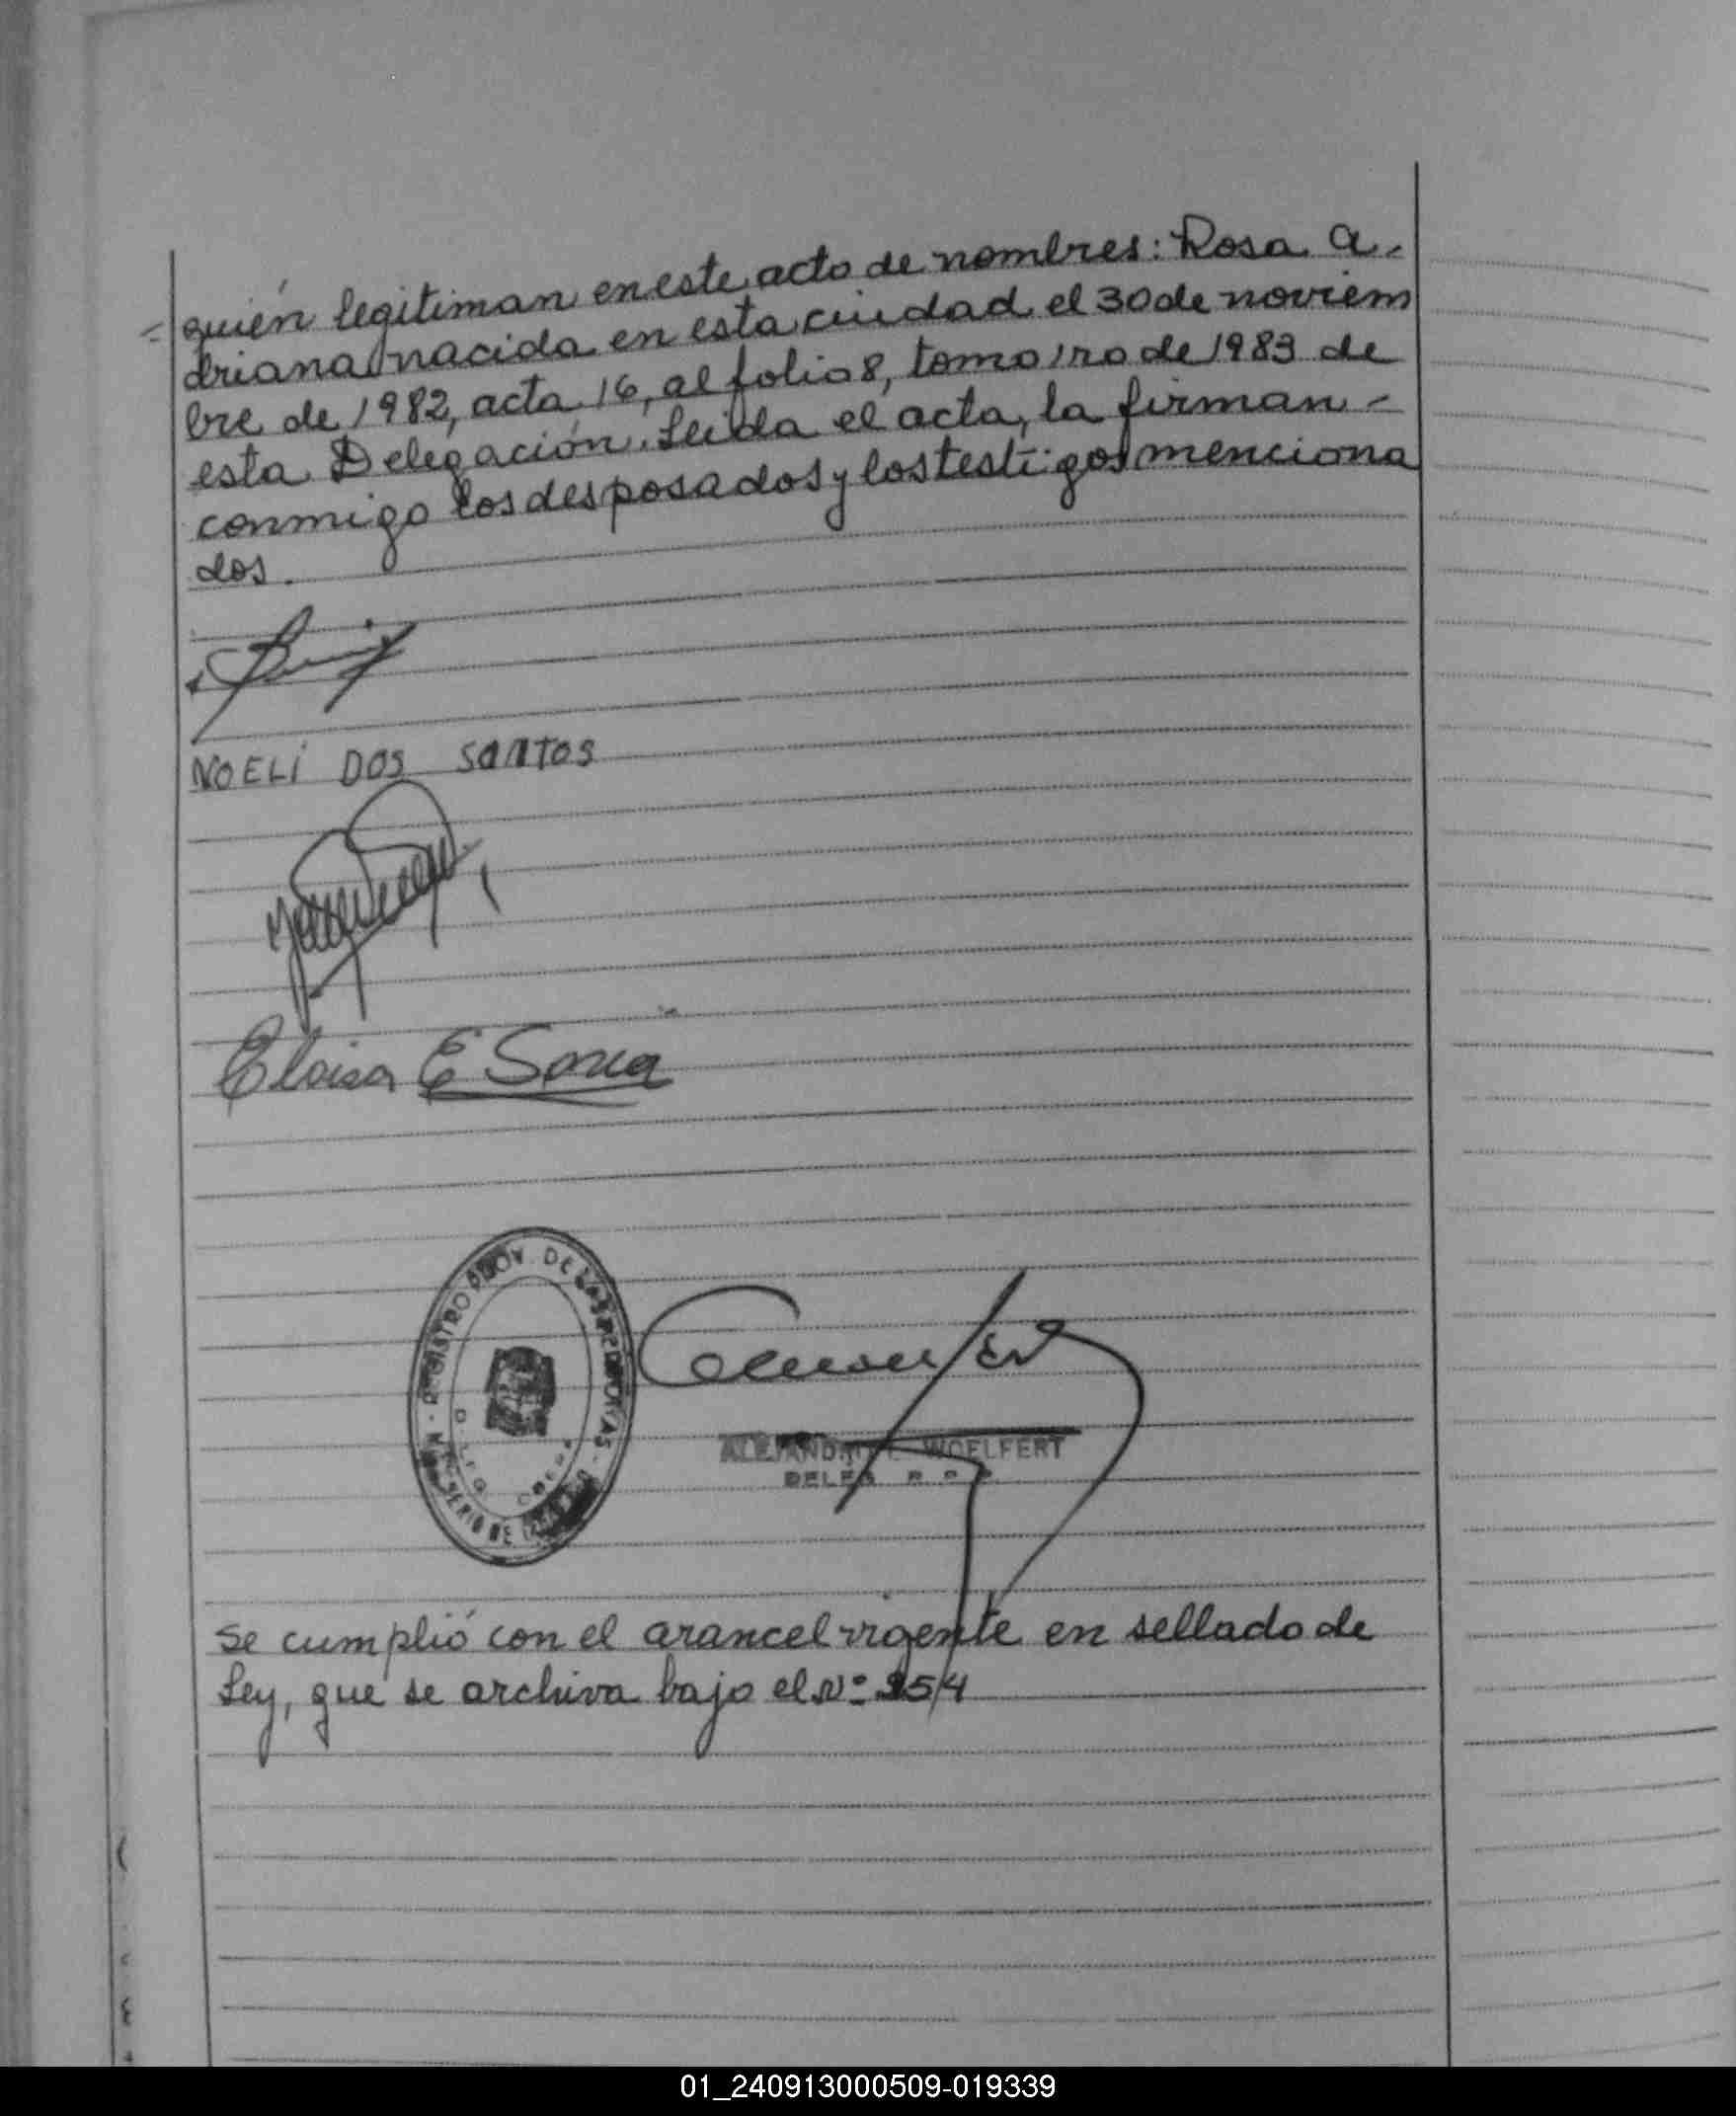 - quién legitiman en este acto de nombres: Rosa A-
driana nacida en esta ciudad el 30 de noviem
bre de 1982, acta 16, al folio 8, tomo 1ro de 1983 de
esta Delegación. Leida el acta, la firman -
conmigo los desposados y los testigos menciona
dos.
NOELI DOS SANTOS
Eloisa E Soria
REGISTRO PROV. DE LAS PERSONAS
ALEJANDRO WOELFERT
DELEG. R. P. P.
Se cumplió con el arancel vigente en sellado de
Ley, que se archiva bajo el Nº 254
01_240913000509-019339